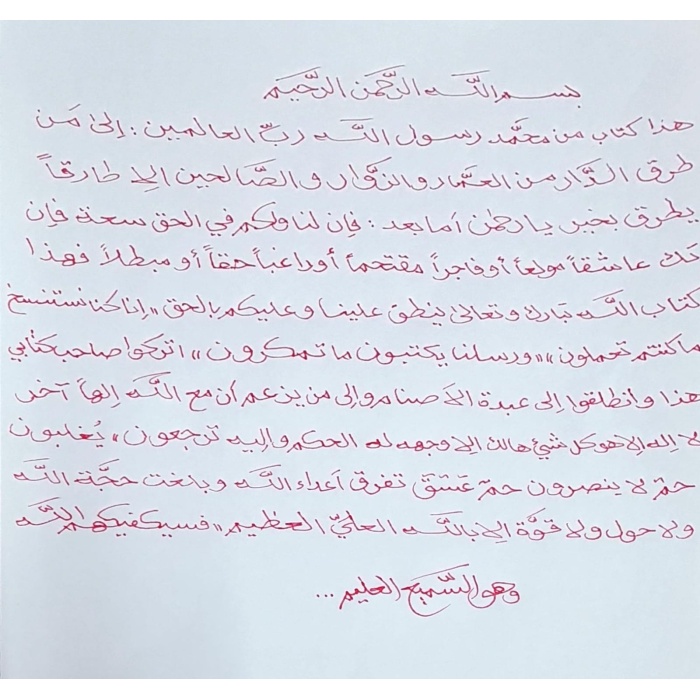 بسم اللَّه الرَّحمن الرَّحيم
هذا كتاب من محمَّد رسول اللَّه ربِّ العالمين : إلىٰ مَن
طرق الدَّار من العمَّار والزوَّار والصَّالحين إلا طارقاً
يطرق بخير يا رحمٰن أما بعد : فإن لنا ولكم في الحق سعة فإن
تك عاشقاً مولعاً أو فاجراً مقتحماً أو راغباً حقاً أو مبطلاً فهذا
كتاب اللَّه تبارك وتعالىٰ ينطق علينا وعليكم بالحق «إنا كنا نستنسخ
ما كنتم تعملون» «ورسلنا يكتبون ما تمكرون» اتركوا صاحب كتابي
هذا وانطلقوا إلى عبدة الاصنام وإلى من يزعم أن مع اللَّه إلهاً آخر
لا إله إلا هو كل شيئ هالك إلا وجهه له الحكم وإليه ترجعون» يُغلبون
حمۤ لا ينصرون حمۤ عۤسۤقۤ تفرق أعداء اللَّه وبلغت حجَّة اللَّه
ولا حول ولا قوَّة إلا باللَّه العليِّ العظيم «فسيكفيكهم اللَّه
وهو السَّميع العليم ...